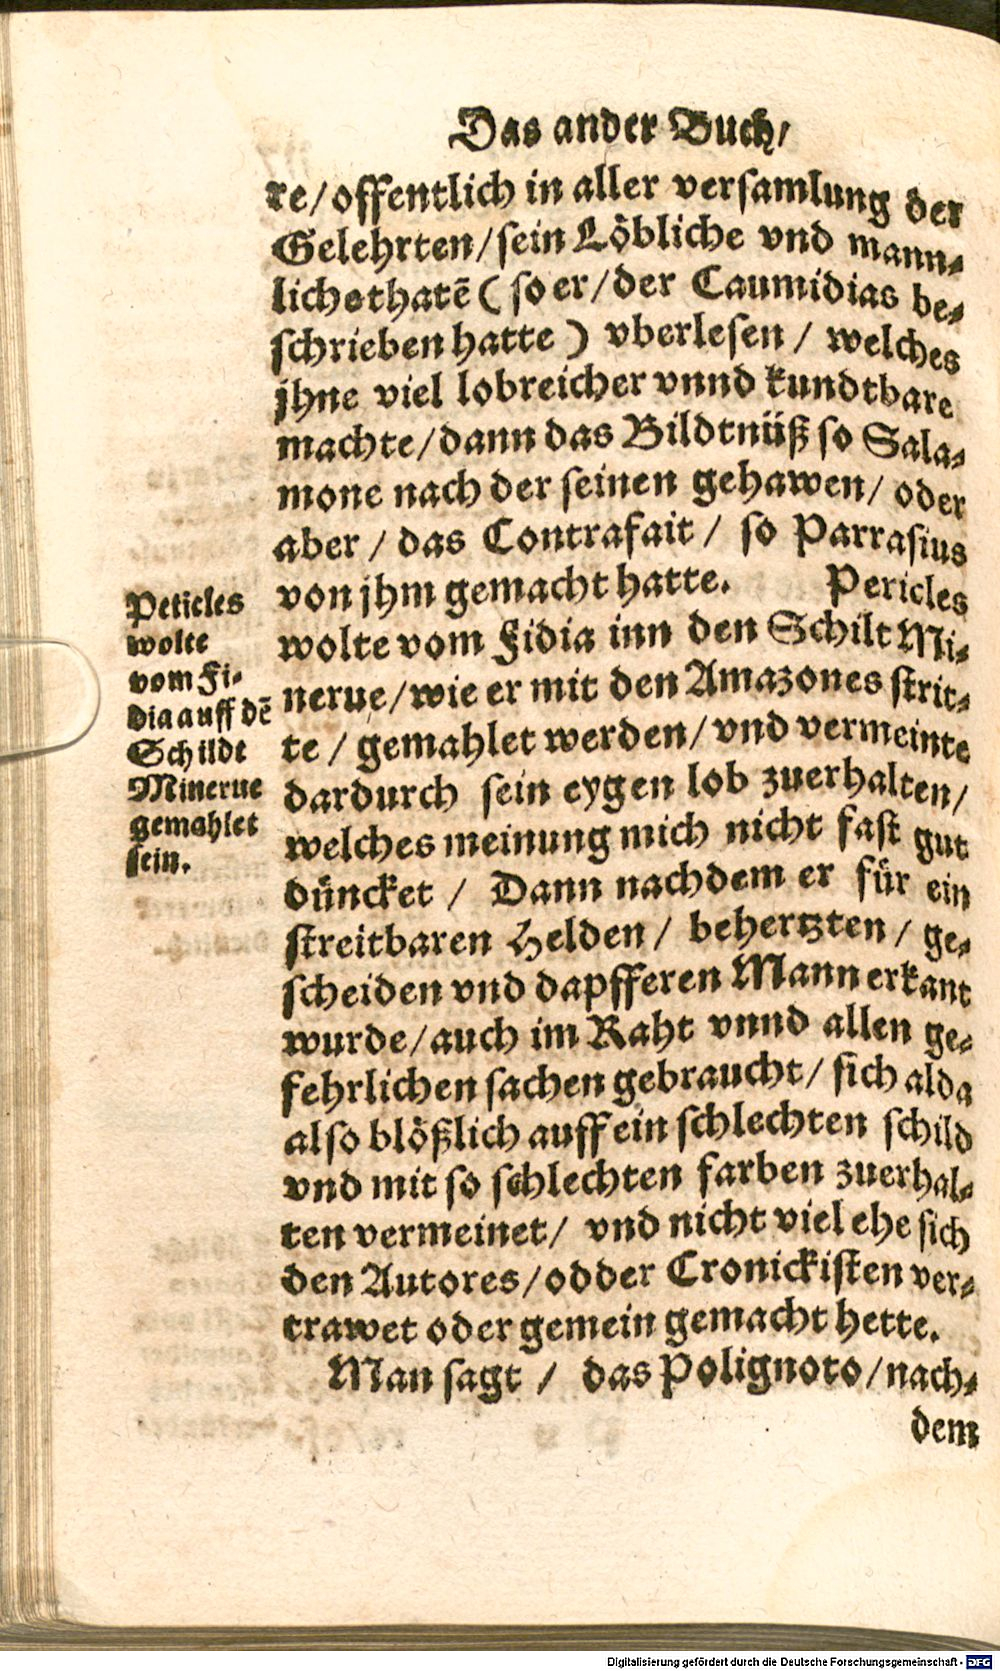 Das ander Buch/
re/offentlich in aller versamlung der
Gelehrten/sein Löbliche vnd mann-
lichethatẽ (so er/der Caumidias be-
schrieben hatte) vberlesen / welches
jhne viel lobreicher vnnd kundtbare
machte/dann das Bildtnüß so Sala-
mone nach der seinen gehawen/ oder
aber / das Contrafait / so Parrasius
von jhm gemacht hatte. Pericles
wolte vom Fidia inn den Schilt Mi-
nerue/wie er mit den Amazones strit-
te / gemahlet werden/vnd vermeinte
dardurch sein eygen lob zuerhalten/
welches meinung mich nicht fast gut
düncket / Dann nachdem er für ein
streitbaren Helden/ behertzten/ ge-
scheiden vnd dapfferen Mann erkant
wurde/auch im Raht vnnd allen ge-
fehrlichen sachen gebraucht/ sich alda
also blößlich auff ein schlechten schild
vnd mit so schlechten farben zuerhal-
ten vermeinet/ vnd nicht viel ehe sich
den Autores/odder Cronickisten ver-
trawet oder gemein gemacht hette.
Man sagt / das Polignoto/nach-
dem
Peticles
wolte
vom Fi-
dia auff dẽ
Schildt
Minerue
gemahlet
sein.
Digitalisierung gefördert durch die Deutsche Forschungsgemeinschaft - DFG